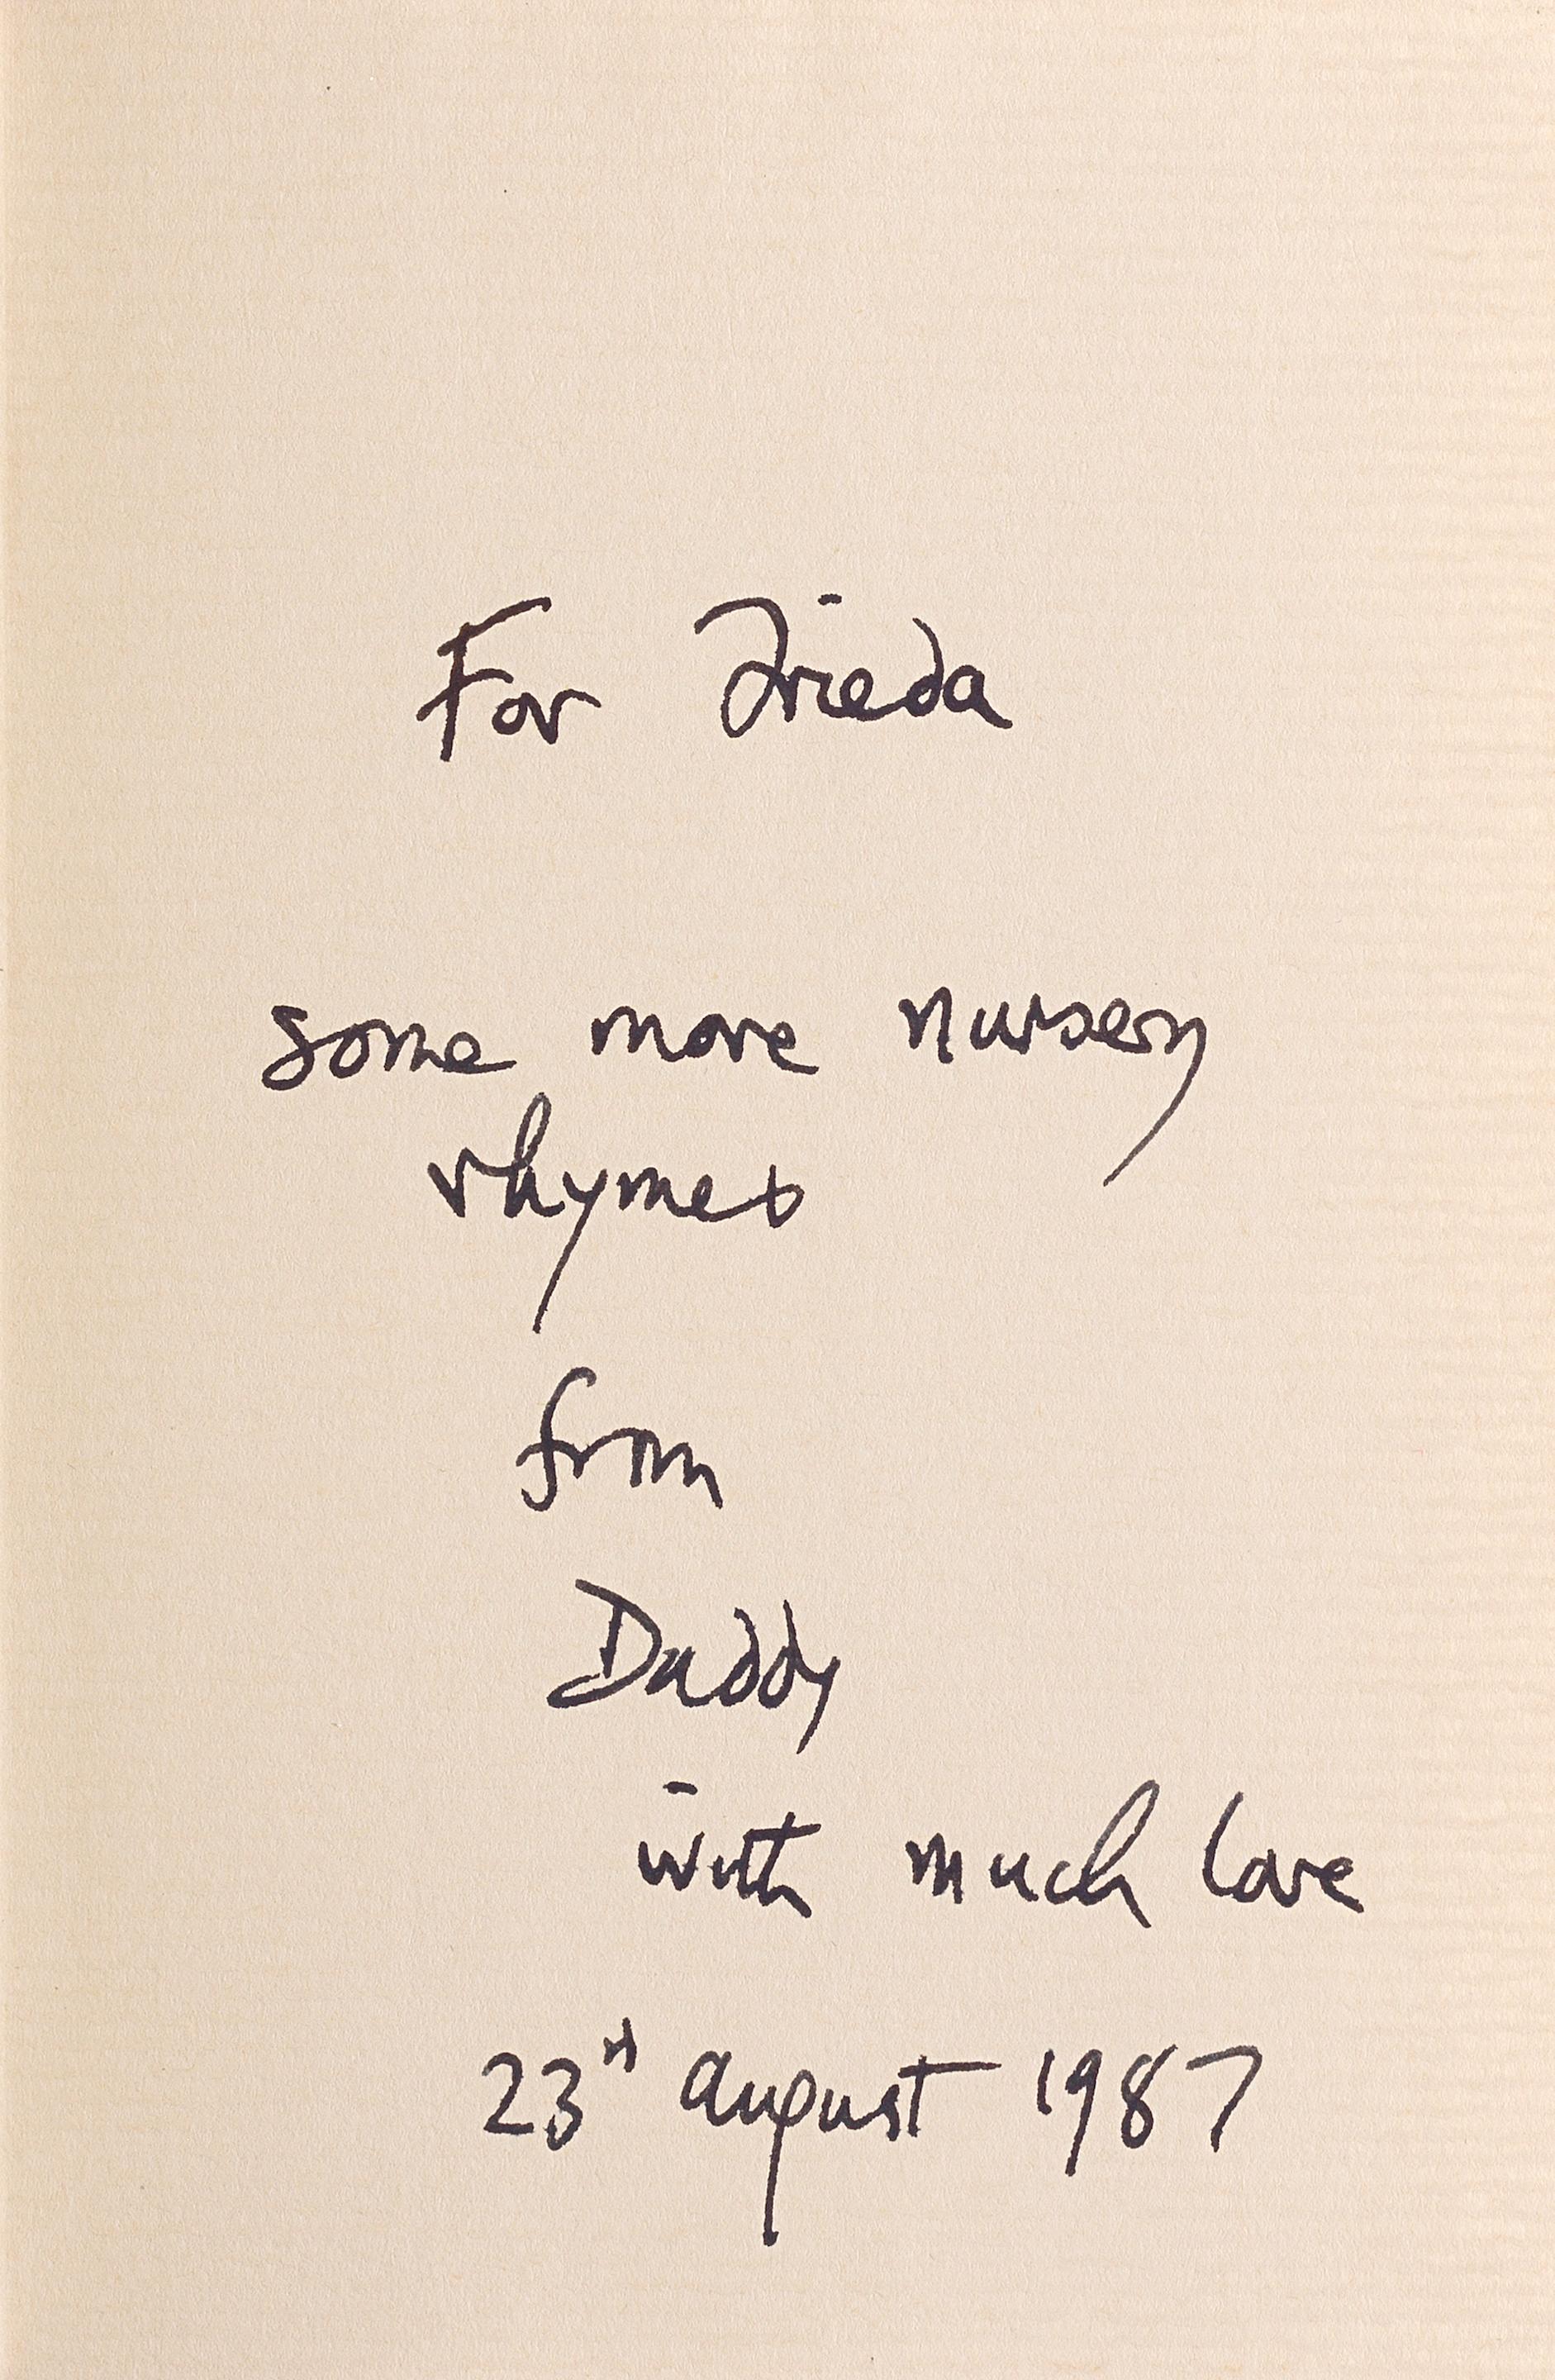 For Frieda
some more nursery
rhymes
from
Daddy
with much love
23rd august 1987